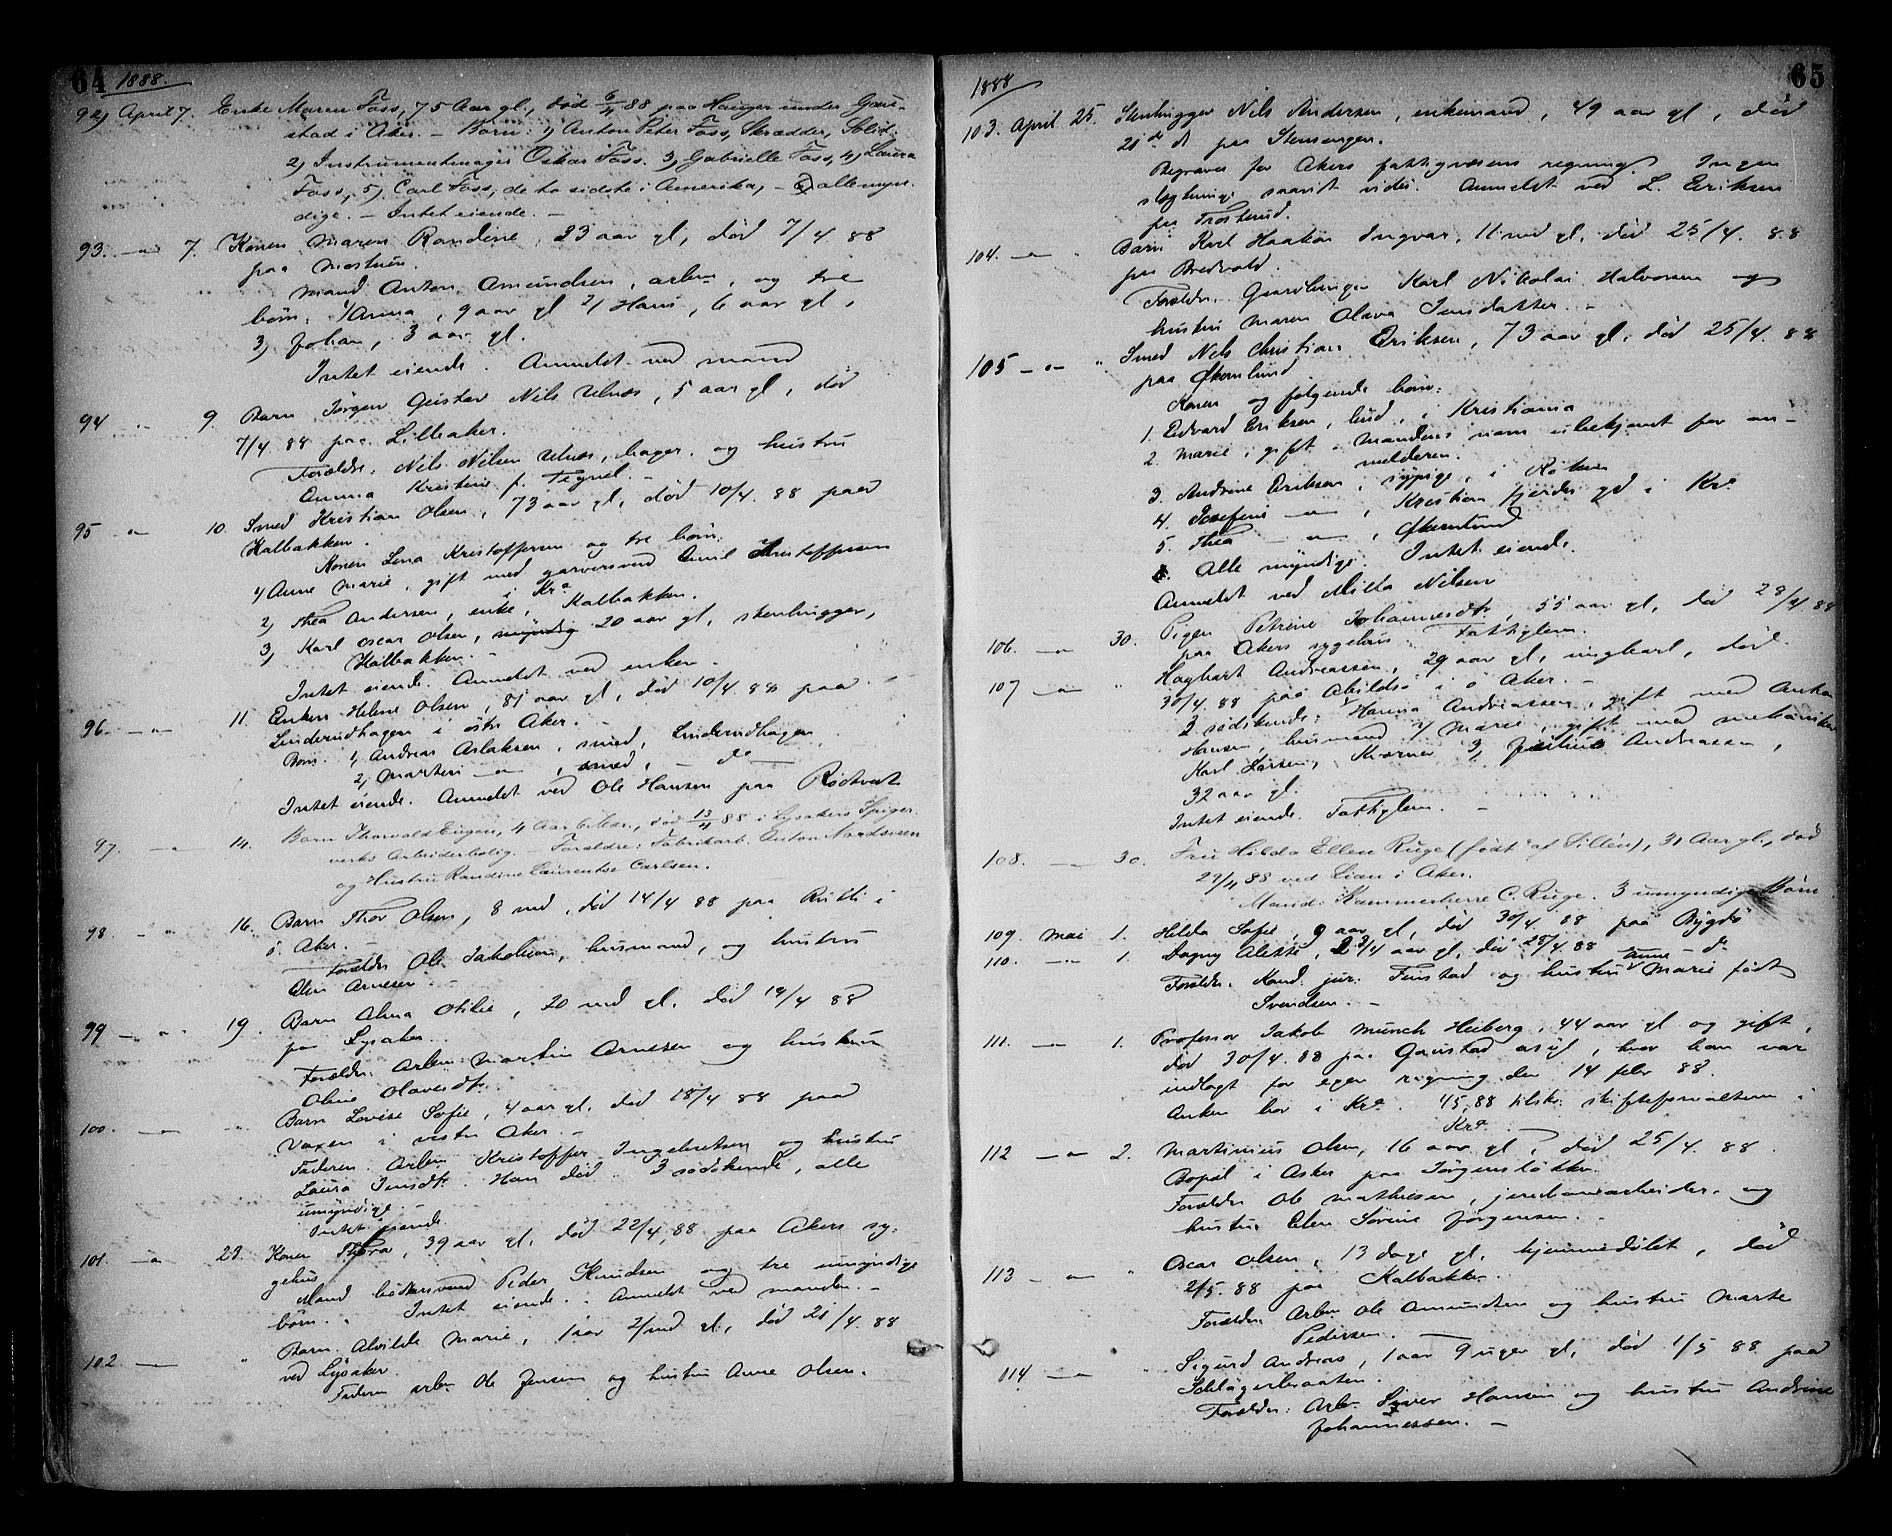 64 1888.
92) April 7. Enke Maren Foss, 75 Aar gl., død 6/4 88 paa Hauger under Gau-
stad i Aker. – Børn: 1) Anton Peter Foss, Skrædder,
2) Instrumentmager Oskar Foss. 3) Gabrielle Foss, 4) Laura
Foss, 5) Carl Foss, de to sidste i Amerika, – alle myn-
dige. – Intet eiende. –
93. –"– 7. Konen Maren Randine, 33 aar gl, død 7/4 88
paa
Mand Anton Amundsen, arbm, og tre
børn. 1/ Anna, 9 aar gl 2/ Hans, 6 aar gl,
3) Johan, 3 aar gl.
Intet eiende. Anmeldt ved mand
94 –"– 9. Barn Jørgen Gustav Nils Ulnæs, 5 aar gl, død
7/4 88 paa Lilleaker.
Forældre. Nils Nilsen Ulnæs, bager, og hustru
Anna Kristine f. Tegnel. –
95 –"– 10. Smed Kristian Olsen, 73 aar gl, død 10/4. 88 paa
Kalbakken.
Konen Lina Kristoffersen og tre børn.
1) Anne Marie, gift med garversvend Emil Kristoffersen
i Kra
2) Thea Andersen, enke, Kalbakken.
3) Karl Oscar Olsen, myndig 20 aar gl, stenhugger,
Kalbakken. –
Intet eiende. Anmeldt ved enken.
96. –"– 11. Enken Helene Olsen, 81 aar gl, død 10/4 88 paa
Linderudhagen i østre Aker. –
Børn: 1, Andreas Aslaksen, smed, Linderudhagen
2, Martin –"–, smed, – do –
Intet eiende. Anmeldt ved Ole Hansen paa Rødtvet
97. –"– 14. Barn Thorvald Eugen, 4 Aar, død 13/4 88 i Lysakers Spiger-
verks Arbeiderbolig. – Forældre: Fabrikarb. Anton Nardsvsen
og Hustru Randine Laurentse Carlsen.
98. –"– 16. Barn Thor Olsen, 8 md, død 14/4 88 paa i
ö. Aker. –
Forældre Ole Jakobsen, husmand, og hustru
Elen Arnesen –
99 –"– 19. Barn Alma Otilie, 20 md gl. død 19/4 88
paa Lysaker.
Forældre. Arbm Martin Arnesen og hustru
Oline Olavesdtr.
100. –"– Barn Lovise Sofie, 4 aar gl, død 18/4 88 paa
Voxen i vestre Aker. –
Faderen. Arbm Kristoffer Ingebretsen og hustru
Laura Jensdtr. Hun død. 3 sødskende, alle
umyndige. –
Intet eiende.
101. –"– 23. Konen Thora, 39 aar gl, død 22/4 88 paa Akers sy-
gehus
Mand bødkersvend Peder Knudsen og tre umyndige
børn. Intet eiende. Anmeldt ved manden. –
102 –"– " Barn. Alvilde Marie, 1 aar 2 md gl, død 21/4. 88
ved Lysaker.
Faderen arbm Ole Jensen og hustru Anne Olsen.
1888 65
103. April 25. Stenhugger Nils Andersen, enkemand, 49 aar gl, død
21 ds paa Stensengen.
Begraves for Akers fattigvæsens regning. Ingen
slægtninge saavidt vides. Anmeldt ved L. Eriksen
paa Trosterud.
104. –"– Barn Karl Haakon Ingvar, 11 md gl, død 25/4. 88
paa Bredvold.
Forældre. Gaardbruger Karl Nikolai Halvorsen og
hustru Maren Olava Jensdatter. –
105 –"– " Smed Nils Christian Eriksen, 73 aar gl, død 25/4. 88
paa Økernlund
Konen og følgende børn:
1. Edvard Eriksen, bud, i Kristiania
2. Marie, gift. Mandens navn ubekjendt for an-
melderen.
3. Andrine Eriksen, sypige, i Røken
4. Josefine –"–, Kristian fjerdes gd i Kra
5. Thea –"–, Økernlund
Alle myndige. Intet eiende.
Anmeldt ved Milla Nilsen
106. –"– 30. Pigen Petrine Johannesdtr, 55 aar gl, død 28/4 88
paa Akers sygehus. Fattiglem.
107 –"– " Hagbart Andreassen, 29 aar gl, ungkarl, død
30/4. 88 paa Abildsø i ö Aker. –
3 sødskende: 1) Hanna Andreassen, gift med Anton
Hansen, husmand 2/ Marie, gift med mekaniker
Karl Larsen, 3, Justine Andreassen,
32 aar gl.
Intet eiende. Fattiglem. –
108. –"– 30. Fru Hilda Ellen Ruge (født af Sillén), 31 Aar gl., død
29/4 88 ved Lian i Aker.
Mand: Kammerherre C. Ruge. 3 umyndige Børn
109. Mai 1. Hilda Sofie, 9 aar gl, død 30/4. 88 paa Bygdø
110. –"– 1. Dagny Alette, 2 3/4 aar gl, død 28/4. 88 – do
Forældre. Kand. jur. Finstad og hustru Anne Marie født
Svendsen. –
111. –"– 1. Professor Jakob Munch Heiberg, 44 aar gl og gift,
død 30/4. 88 paa Gaustad asyl, hvor han var
indlagt for egen regning den 14 febr 88.
Enken bor i Kra. 4/5. 88 tilskr. skifteforvalteren i
Kra.
112 –"– 2. Martinius Olsen, 16 aar gl, død 25/4. 88.
Bopæl i Asker paa Jørgensløkken.
Forældre Ole Mathisen, jernbanearbeider, og
hustru Elen Sørine Jørgensen. –
113 –"– " Oscar Olsen, 13 dage gl, hjemmedøbt, død
2/5. 88 paa Kalbakken.
Forældre Arbm Ole Amundsen og hustru Marte
Pedersen. –
114 –"– " Sigurd Andreas, 1 aar 9 uger gl, død 1/5 88 paa
Schlägerbraaten.
Forældre: Arbm Syver Hansen og hustru Andrine
Johannessen. –